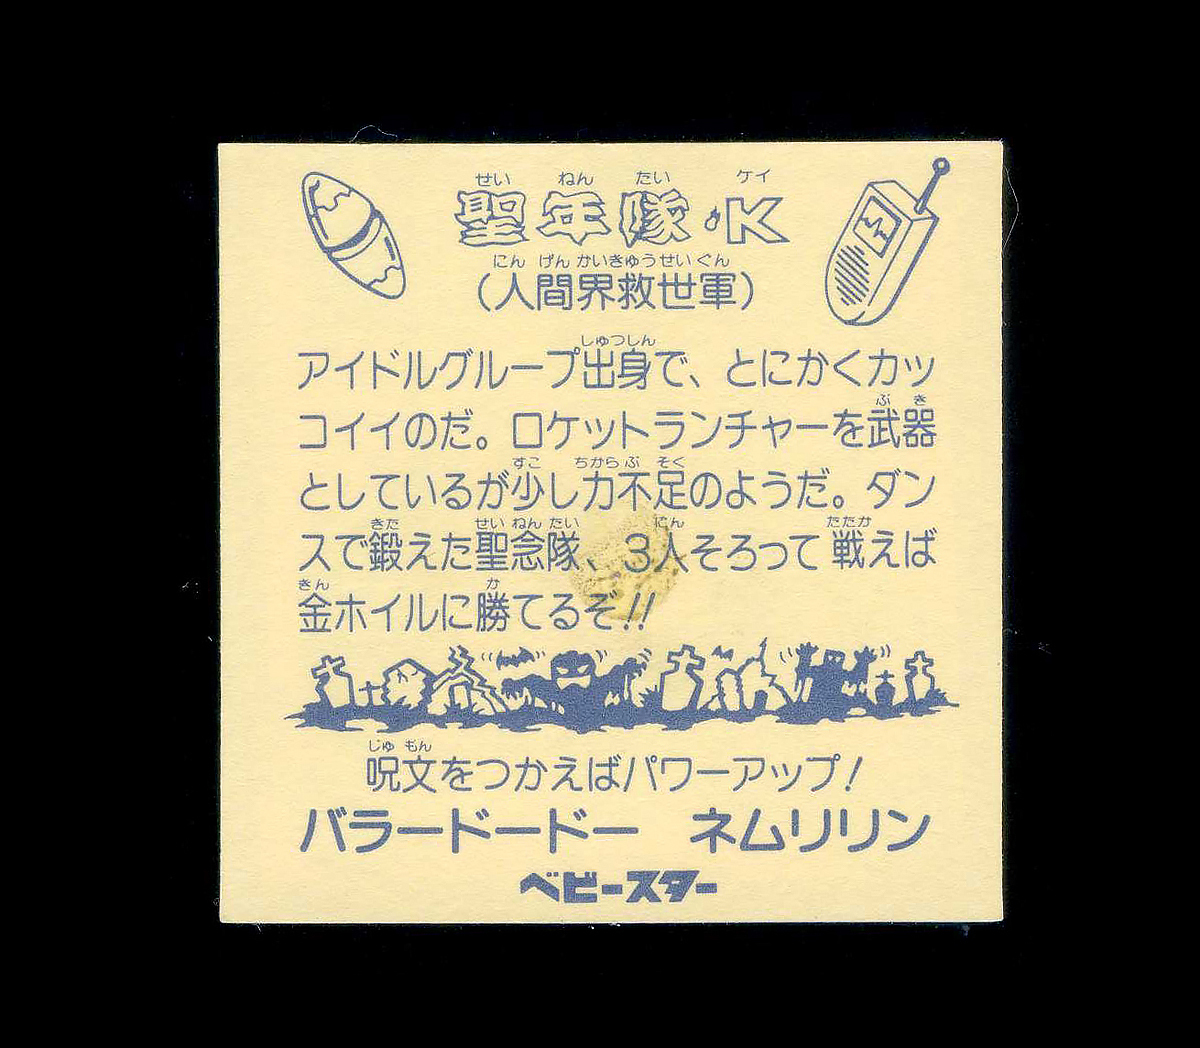 せい ねん たい ケイ
聖年隊・K
にん げん かいきゅうせいぐん
(人間界救世軍)
しゅつしん
アイドルグループ出身で、とにかくカッ
ぶ き
コイイのだ。ロケットランチャーを武器
すこ ちからぶ そく
としているが少し力不足のようだ。ダン
きた せいねんたい にん たたか
スで鍛えた聖念隊、3人そろって戦えば
きん か
金ホイルに勝てるぞ!!
じゅ もん
呪文をつかえばパワーアップ!
バラードードー ネムリリン
ベビースター